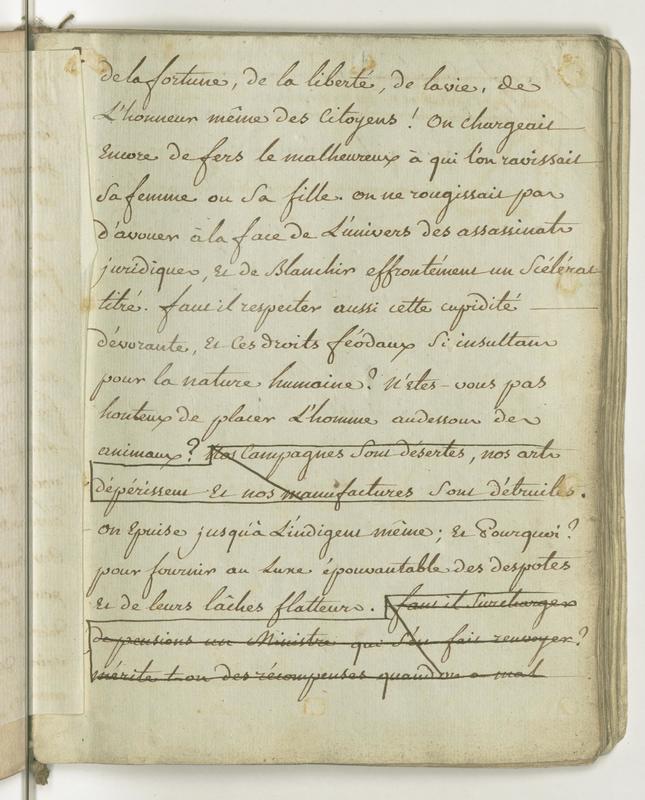 de la fortune, de la liberté, de la vie, de
L'honneur même des Citoyens ! On chargeait
Encore de fers le malheureux à qui l'on ravissait
Sa femme ou Sa fille. on ne rougissait pas
D'avouer à la face de L'univers des assassinats
juridiques, Et de Blanchir effrontément un Scélérat
titré. faut il respecter aussi cette cupidité
dévorante, Et Ces droits féodaux Si insultans
pour la nature humaine ? N'Etes-vous pas
honteux de placer L'homme audessous des
animaux ? Nos Campagnes Sont désertes, nos arts
dépérissent Et nos manufactures Sont détruites.
On Epuise jusqu'à L'indigent même ; Et Pourquoi ?
pour fournir au Luxe épouvantable des despotes
Et de leurs lâches flatteurs. faut il Surcharger
de pensions un Ministre qui S'en fait renvoyer ?
mérite t-on des récompenses quand on a mal